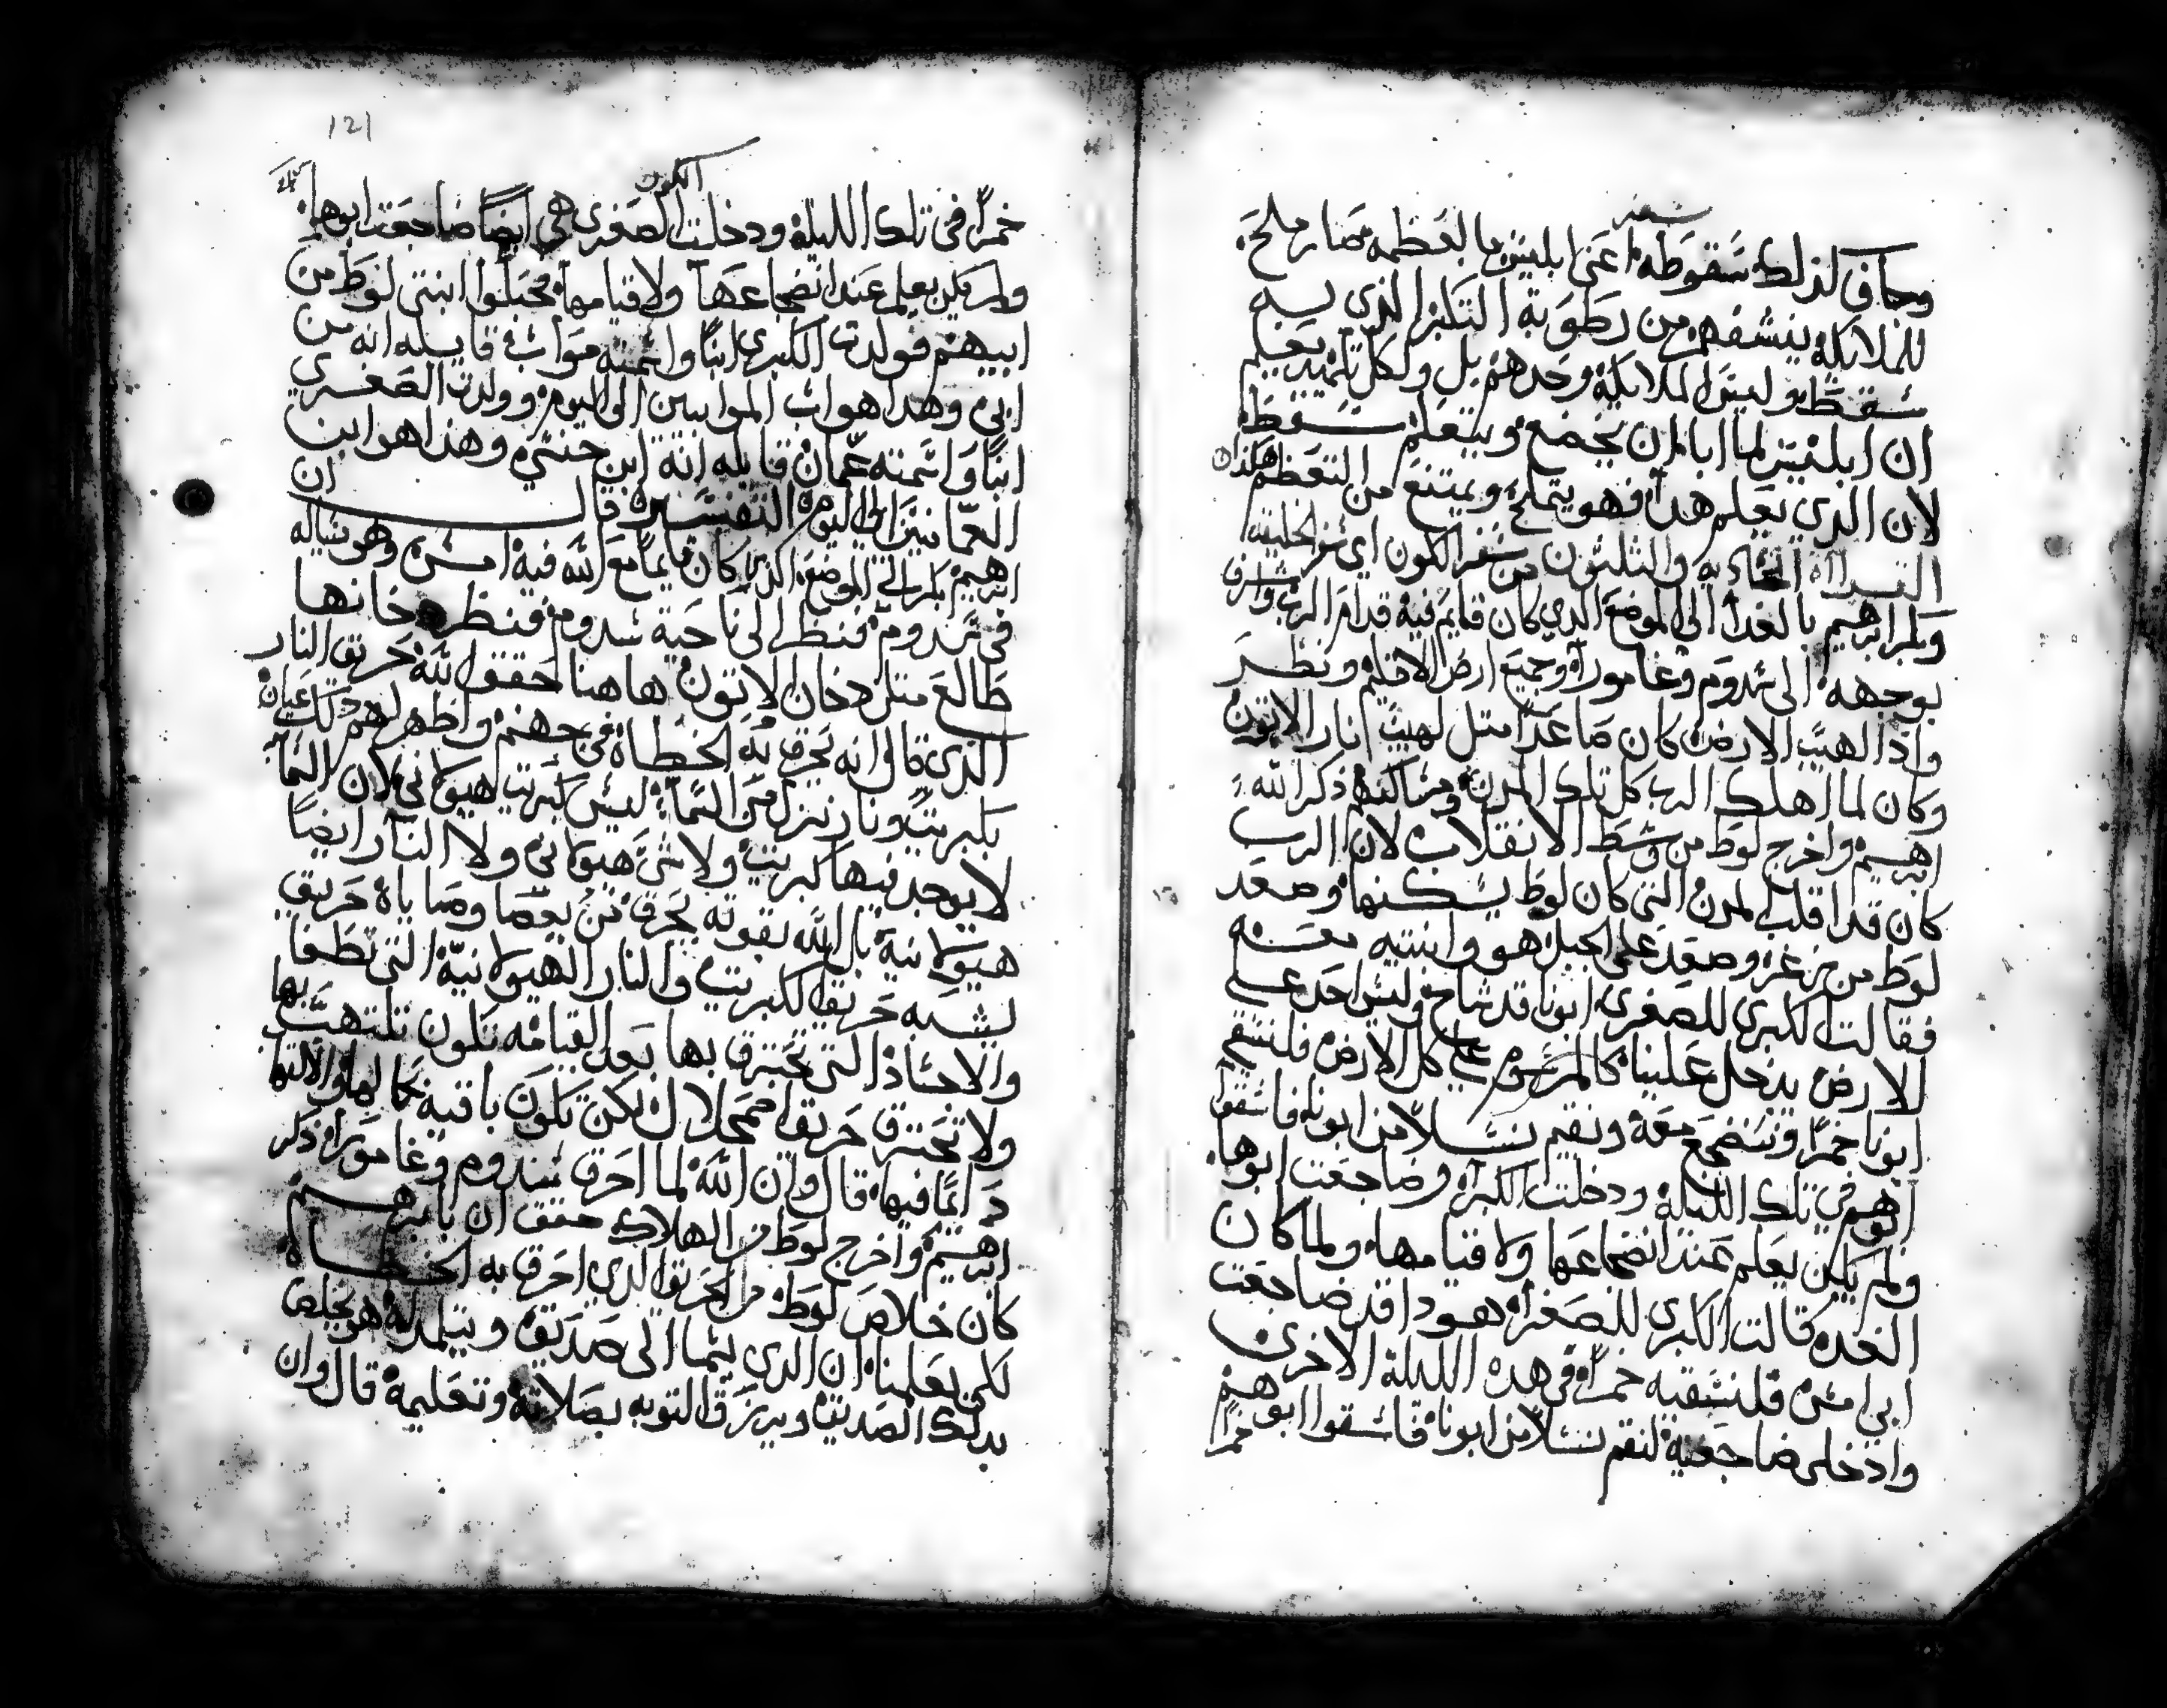 سفر
وكاف لذلك سقوطه اعني ابليس بالعظمه صار ملح
للملايكة ينشفهم من رطوبة التكبر الذي به
سقط وليس الملايكة وحدهم بل ولكل تلميذ يعلم
ان ابليس لما ابا ان يخضع ويتعلم سقط
لان الذي يعلم هدا فهو يتملح ويمتنع من التعظم هكذا
القراة الحاديه والثلثون من سفر الكون اي سفر الخليقة
وبكر ابرهيم بالغداة الى الموضع الدي كان قايم فيه قدام الرب واشرف
بوجهه الى سدوم وغامورا وجميع ارض الاقليم ونظر
واذا لهيب الارض كان صاعدا متل لهيب نار الاتون
وكان لما اهلك الرب كل تلك المدن ومساكنها ذكر الله
ابرهيم واخرج لوط من وسط الانقلاب لان الرب
كان قد اقلب المدن التي كان لوط يسكنها وصعد
لوط من زغر وصعد على الجبل هو وابنتيه معه
فقالت الكبرى للصغرى ابونا قد شاخ وليس احد على
الارض يدخل علينا كالمرسوم على كل الارض فلنسقي
ابونا خمرا وننضجع معه ونقيم نسلا من ابونا فاسقوا
ابوهم في تلك الليلة ودخلت الكبرا وضاجعت ابوها
ولم يكن يعلم عند انضجاعها ولا قيامها ولما كان
الغده قالت الكبرى للصغرا هودا قد ضاجعت
ابي امس فلنسقيه خمرا في هده الليلة الاخرى
وادخلي ضاجعيه لنقم نسلا من ابونا فاسقوا ابوهم خمرا
121
الكون
خمرا في تلك الليلة ودخلت الصغرى هي ايضا ضاجعت ابوها
ولم يكن يعلم عند انضجاعها ولا قيامها فحبلوا ابنتى لوط من
ابيهم فولدت الكبرى ابنا واسمته مواب قايله انه من
ابي وهدا هو اب الموابيين الى اليوم وولدت الصغرى
ابنا واسمته عمان قايله انه ابن جنسي وهذا هو ابن
العمانيين الى اليوم التفسير قال ان
ابرهيم بكر الي الموضع الذي كان قايما مع الله فيه امس وهو يساله
في سدوم فنظر الى ناحية سدوم فنظر دخانها
طالع متل دخان الاتون هاهنا حقق الله حريق النار
الذي قال انه يحرق به الخطاة في جهنم واظهر لهم ذلك عيان
بكبريت ونار نزل من السما ليس كبريت هيولاني لان السما
لا يوجد فيها كبريت ولا شي هيولاني ولا النار ايضا
هيولانية بل الله بقوته يحرق من يعصا وصاياه حريق
يشبه حريق الكبريت والنار الهيولانية التي تطفا
والاجساد التي تحترق بها بعد القيامه تكون تلتهب بها
ولا تحترق حريقا مضمحلا لكن تكون باقية كما لها والالتهاب
دايما فيها قال وان الله لما احرق سدوم وغامورا ذكر
ابرهيم واخرج لوط من الهلاك حقق ان بابرهيم
كان خلاص لوط من الحريق الدي احرق به الخطاة
لكي يعلمنا ان الدي ينما الى صديق ويتلمد له هو يخلص
بدلك الصديق ويرزق التوبه بصلاته وتعليمه قال وان